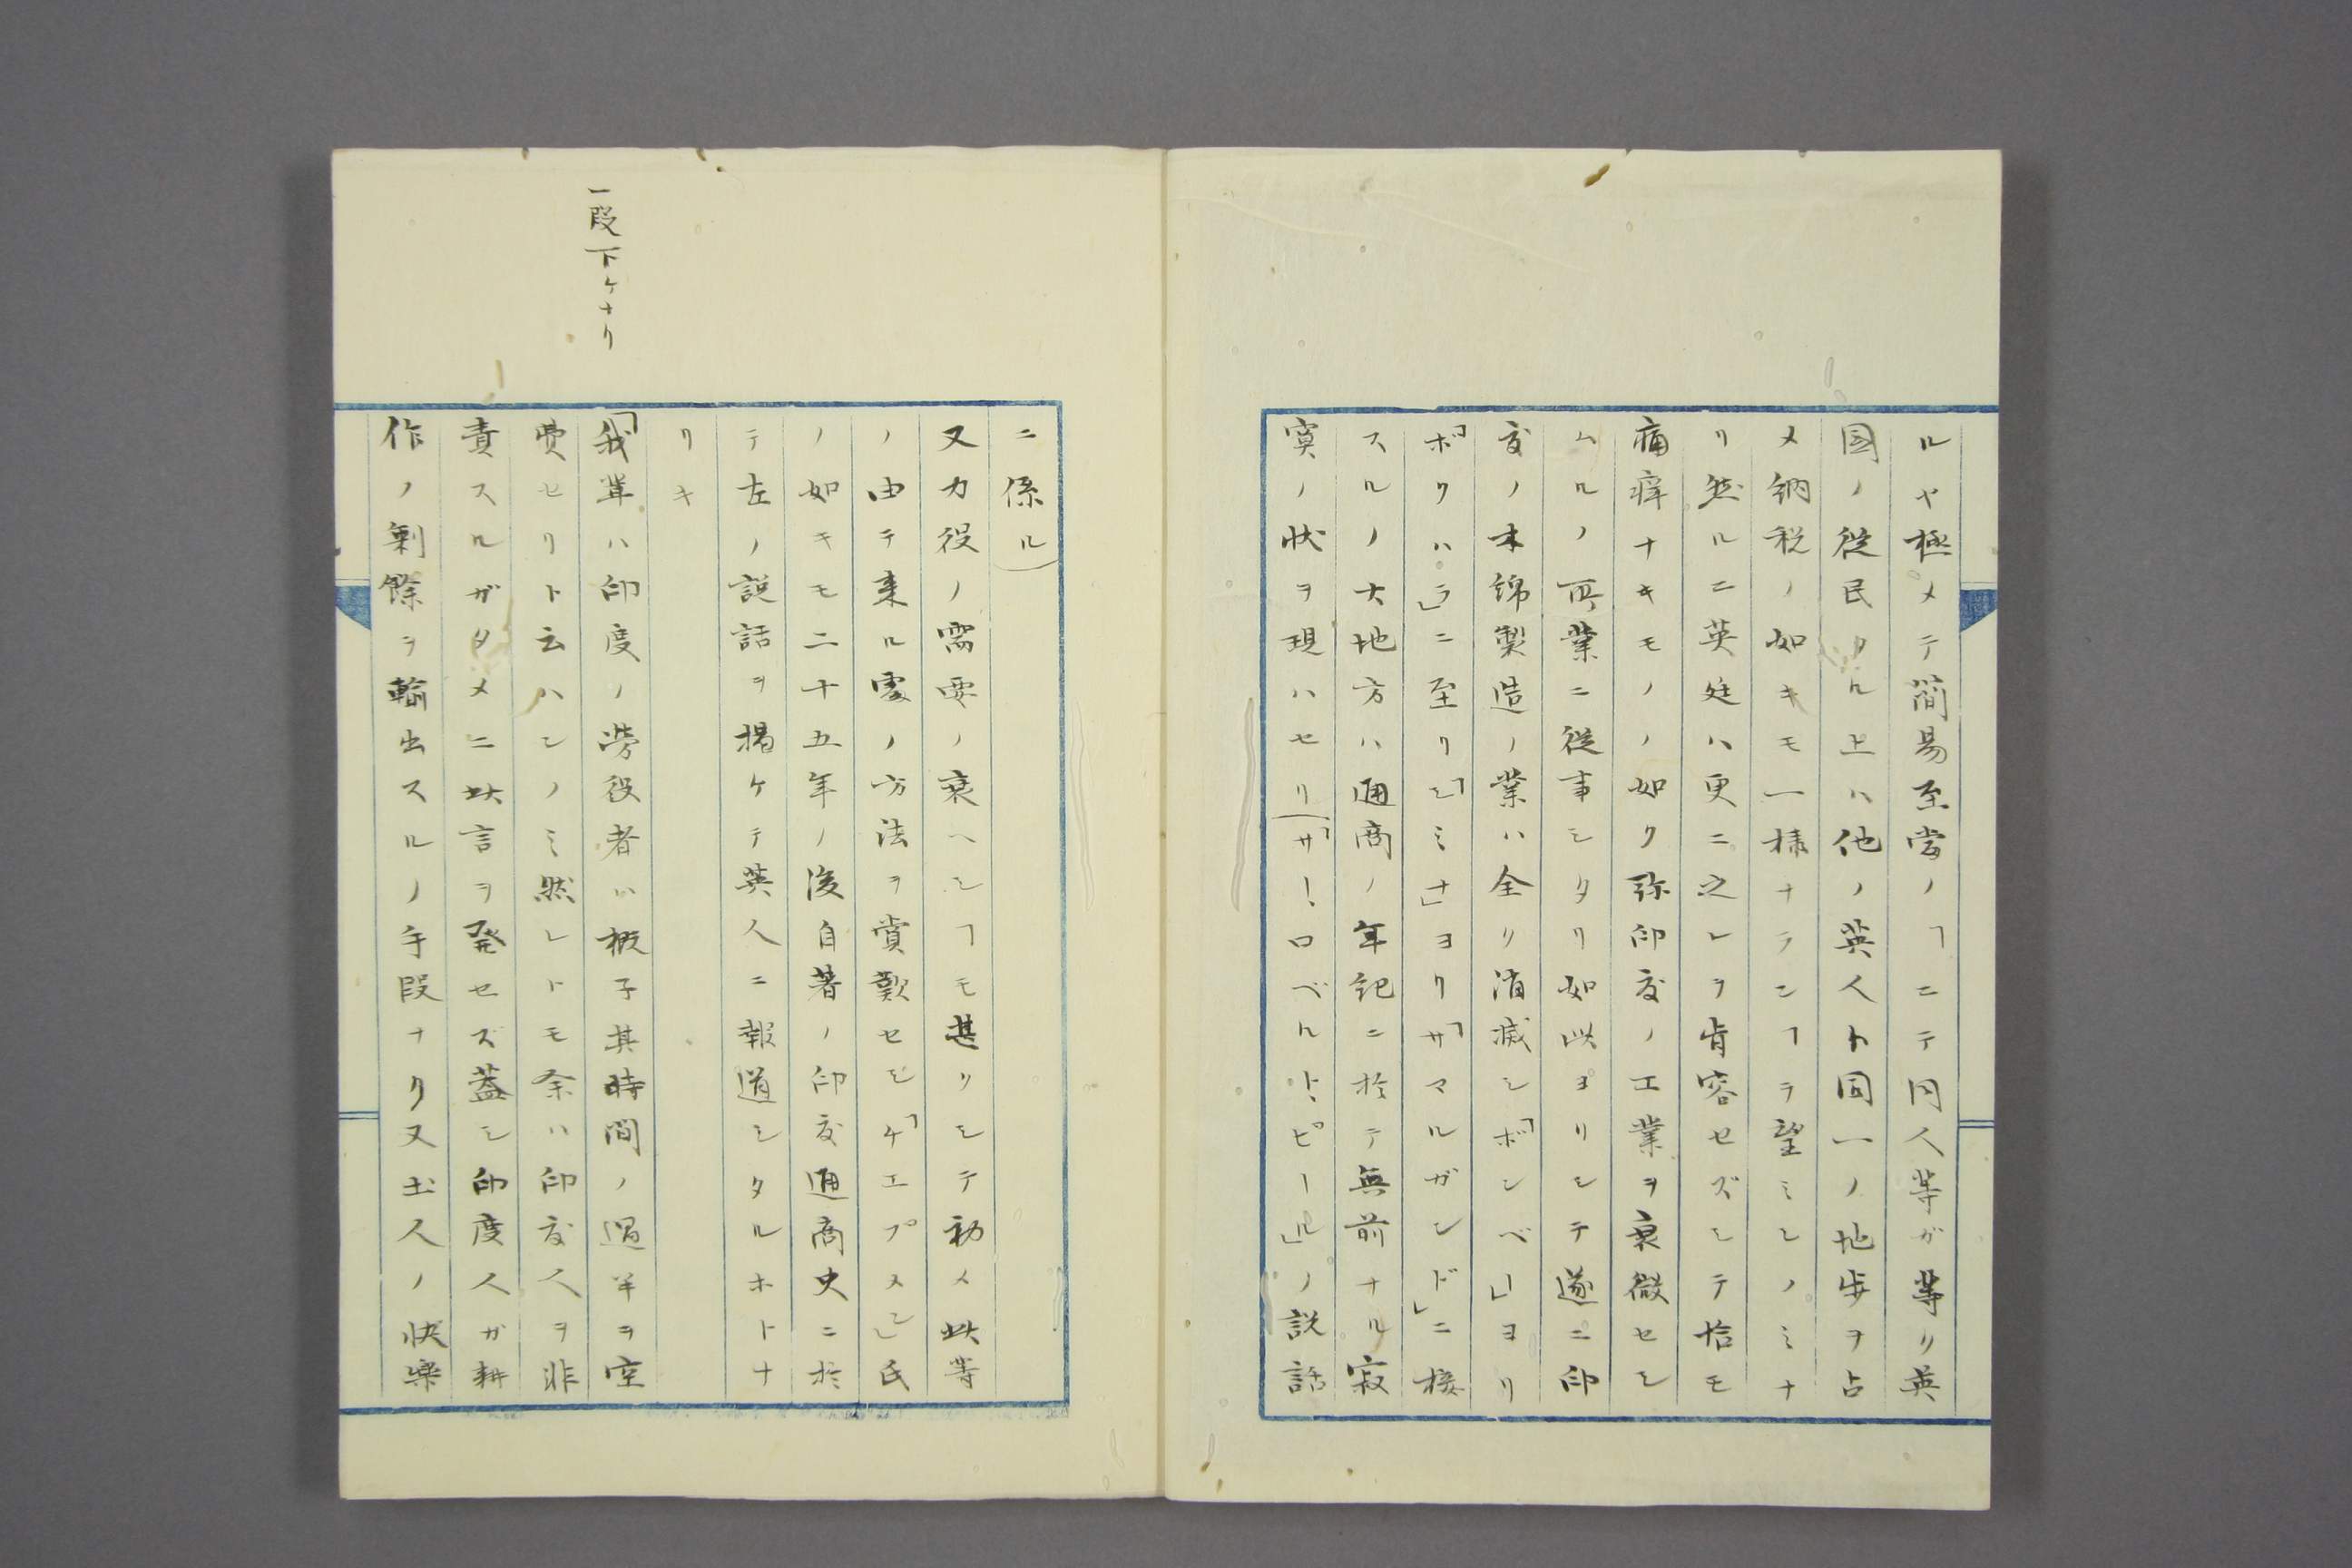 ルヤ極メテ簡易至当ノヿニテ同人等ガ等リ英
国ノ従民タル上ハ他ノ英人ト同一ノ地歩ヲ占
メ納税ノ如キモ一様ナランヿヲ望ミシノミナ
リ然ルニ英廷ハ更ニ之レヲ肯容セズシテ恰モ
痛痒ナキモノノ如ク弥印度ノ工業ヲ衰微セシ
ムルノ所業ニ従事シタリ如此ヨリシテ遂ニ印
度ノ木綿製造ノ業ハ全ク消滅シ「ボンベー」ヨリ
「ボクハラ」ニ至リ「シミナ」ヨリ「サマルガンド」ニ接
スルノ大地方ハ通商ノ年記ニ於テ無前ナル寂
寞ノ状ヲ現ハセリ(「サー、ロベルト、ピール」ノ説話
ニ係ル)
又力役ノ需要ノ衰ヘシヿモ甚クシテ初メ此等
ノ由テ来ル処ノ方法ヲ賞歎セシ「ケエプメン」氏
ノ如キモ二十五年ノ後自著ノ印度通商史ニ於
テ左ノ説話ヲ掲ケテ英人ニ報道シタルホトナ
リキ
一段下ケナリ
「我輩ハ印度ノ労役者ハ概子其時間ノ過半ヲ空
費セリト云ハンノミ然レトモ余ハ印度人ヲ非
責スルガタメニ此言ヲ発セズ蓋シ印度人ガ耕
作ノ剰餘ヲ輸出スルノ手段ナク又土人ノ快楽